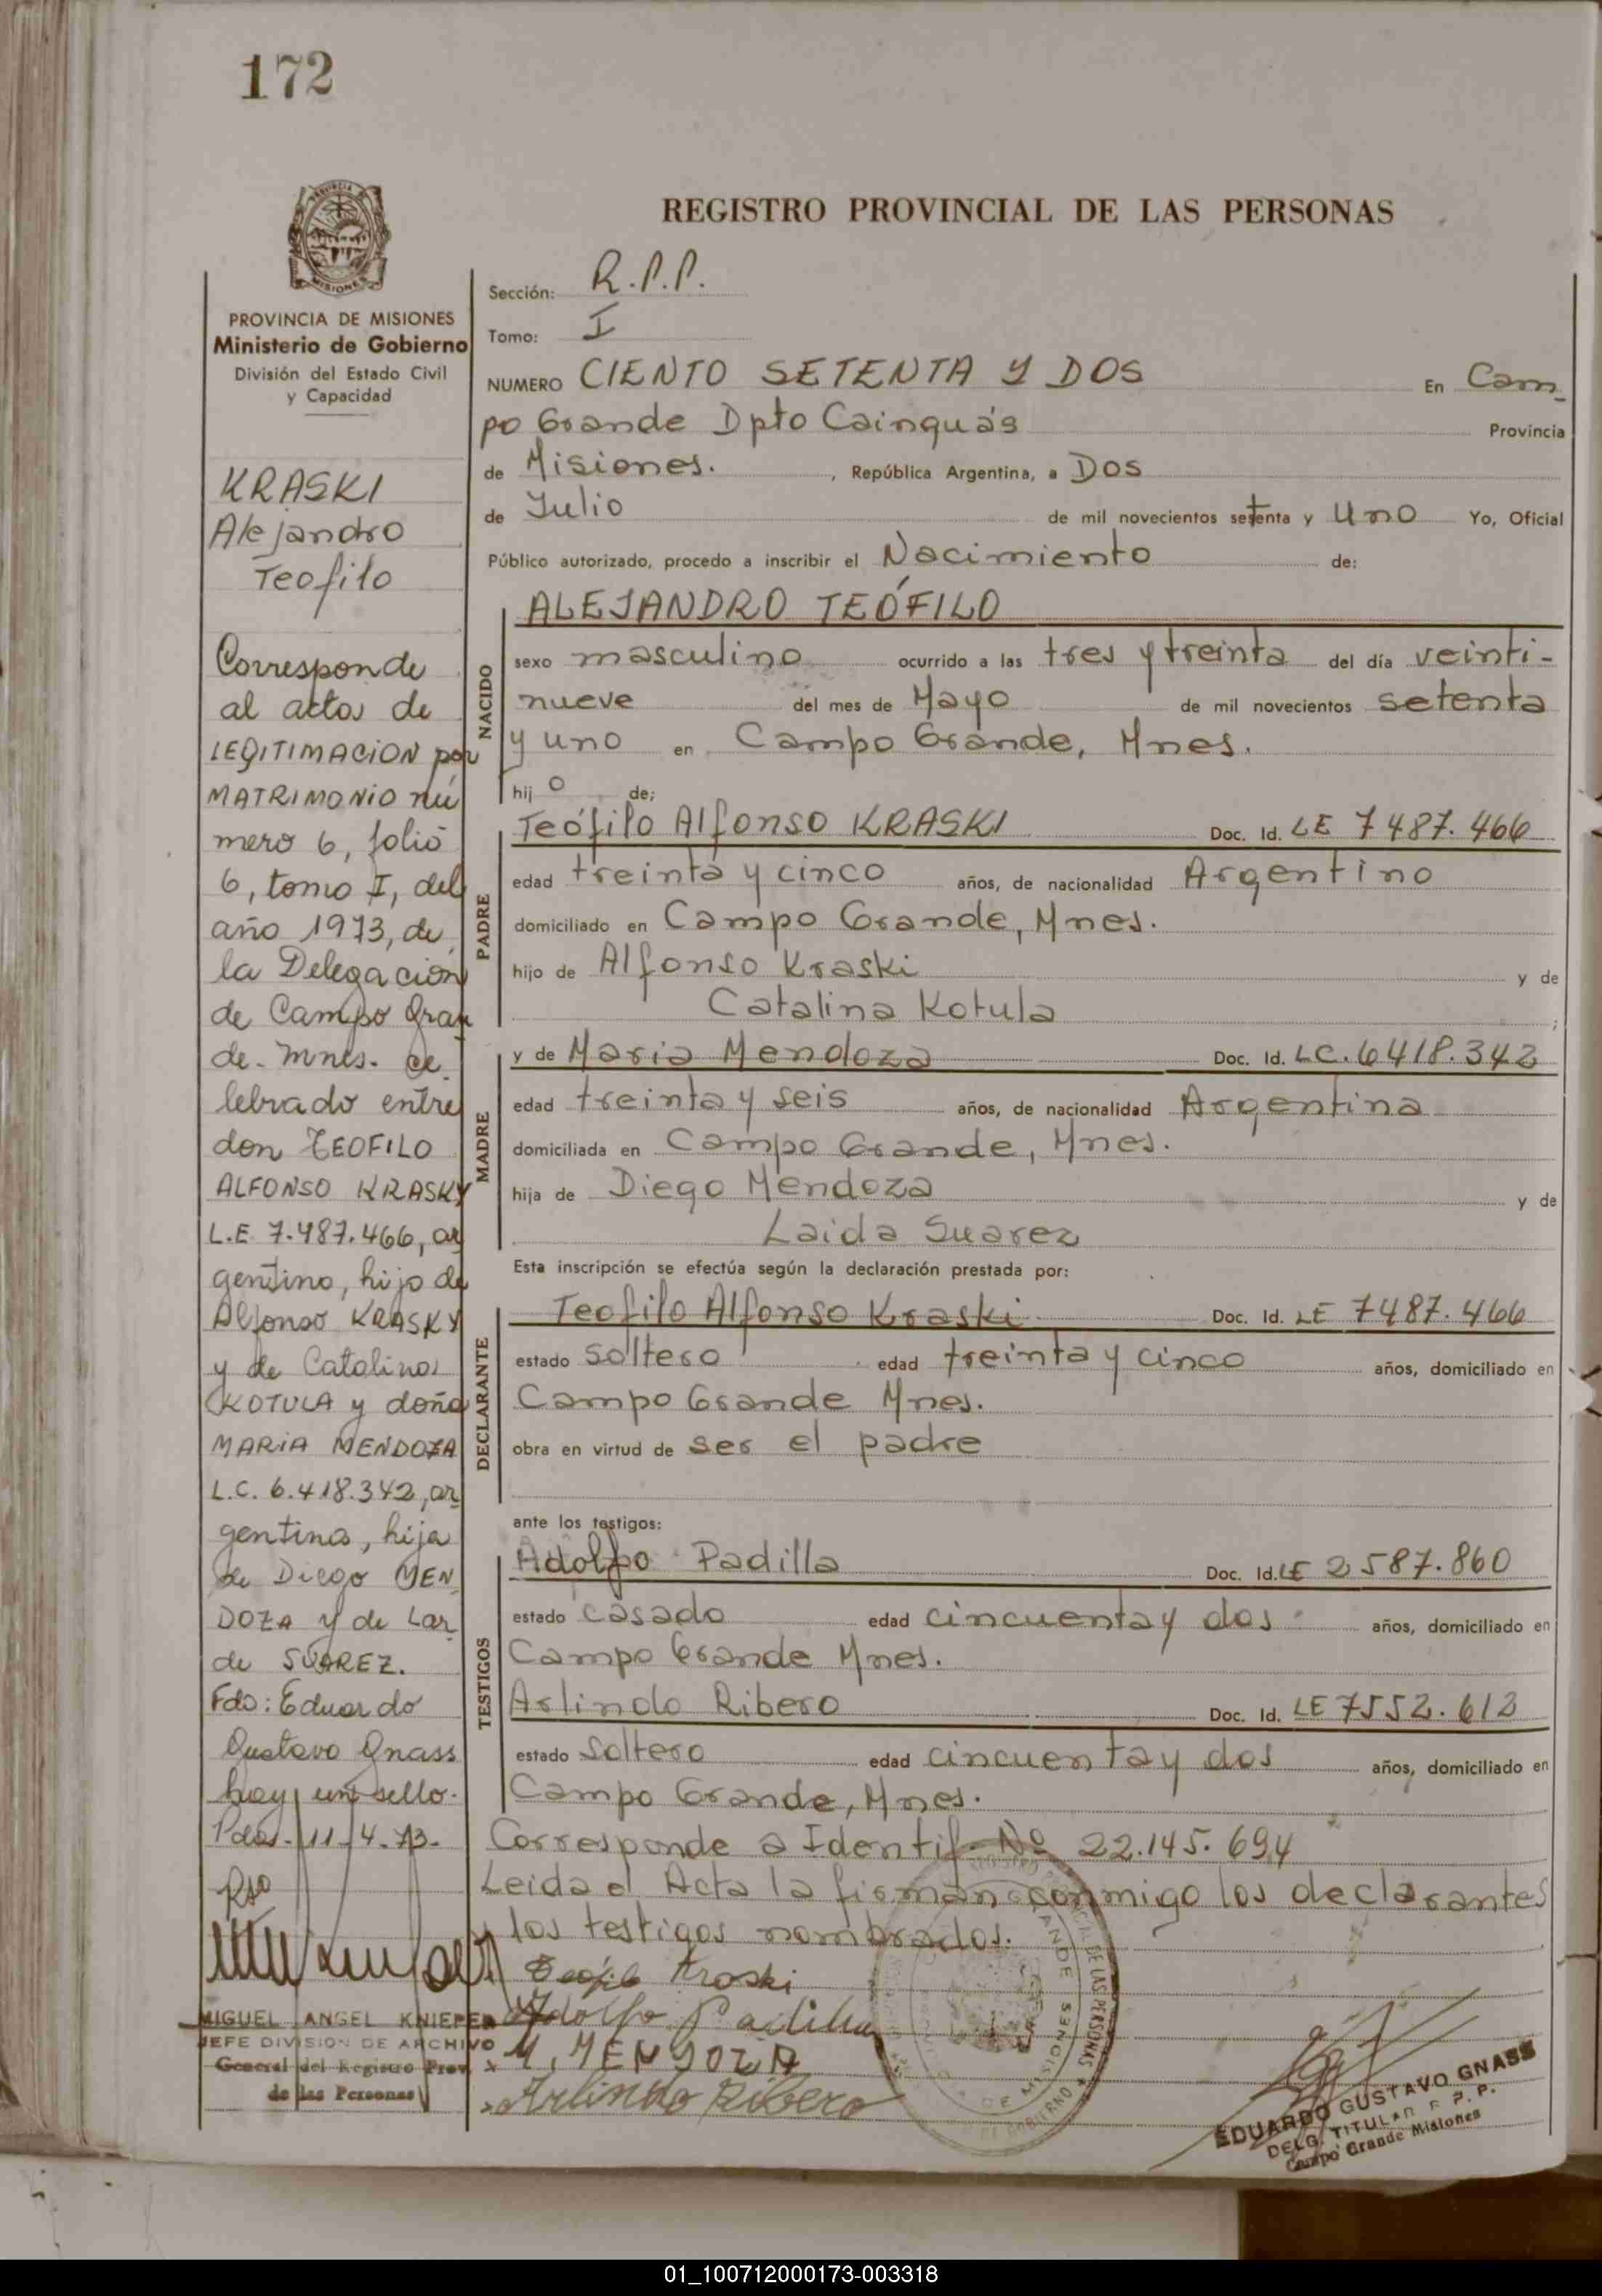 172
MISIONES
PROVINCIA DE MISIONES
Ministerio de Gobierno
División del Estado Civil
y Capacidad
KRASKI
Alejandro
Teofilo
Corresponde
al actos de
LEGITIMACION por
MATRIMONIO nú
mero 6, folio
6, tomo I, del
año 1973, de
la Delegación
de Campo Gran
de - Mnes. ce
lebrado entre
don TEOFILO
ALFONSO KRASKY
L.E. 7.487.466, ar
gentino, hijo de
Alfonso KRASKY
y de Catalina
KOTULA y doña
MARIA MENDOZA
L.C. 6.418.342, ar
gentina, hija
de Diego MEN
DOZA y de Lai
de SUAREZ.
Fdo: Eduardo
Gustavo Gnass
hay un sello.
Pdas. 11-4-73-
MIGUEL ANGEL KNIEPER
JEFE DIVISION DE ARCHIVO
General del Registro Prov.
de las Personas
REGISTRO PROVINCIAL DE LAS PERSONAS
Sección: R.P.P.
Tomo: I
NUMERO CIENTO SETENTA Y DOS En Cam
po Grande Dpto Cainguás Provincia
de Misiones. , República Argentina, a Dos
de Julio de mil novecientos setenta y uno Yo, Oficial
Público autorizado, procedo a inscribir el Nacimiento de:
ALEJANDRO TEÓFILO
NACIDO
sexo masculino ocurrido a las tres y treinta del día veinti-
nueve del mes de Mayo de mil novecientos setenta
y uno en Campo Grande, Mnes.
hij o de;
Teófilo Alfonso KRASKI Doc. Id. LE 7487.466
PADRE
edad treinta y cinco años, de nacionalidad Argentino
domiciliado en Campo Grande, Mnes.
hijo de Alfonso Kraski y de
Catalina Kotula ;
y de Maria Mendoza Doc. Id. LC. 6418.342
MADRE
edad treinta y seis años, de nacionalidad Argentina
domiciliada en Campo Grande, Mnes.
hija de Diego Mendoza y de
Laida Suarez
Esta inscripción se efectúa según la declaración prestada por:
Teofilo Alfonso Kraski Doc. Id. LE 7487.466
DECLARANTE
estado soltero edad treinta y cinco años, domiciliado en
Campo Grande Mnes.
obra en virtud de ser el padre
ante los testigos:
Adolfo Padilla Doc. Id. LE 2587.860
TESTIGOS
estado casado edad cincuenta y dos años, domiciliado en
Campo Grande Mnes.
Arlindo Ribero Doc. Id. LE 7552.612
estado soltero edad cincuenta y dos años, domiciliado en
Campo Grande, Mnes.
Corresponde a Identif. Nº 22.145.694
Leida el Acta la firman conmigo los declarantes
y los testigos nombrados.
Teofilo Kraski
Adolfo Padilla
M. MENDOZA
Arlindo Ribero
EDUARDO GUSTAVO GNASS
DELG. TITULAR R. P. P.
Campo Grande Misiones
01_100712000173-003318